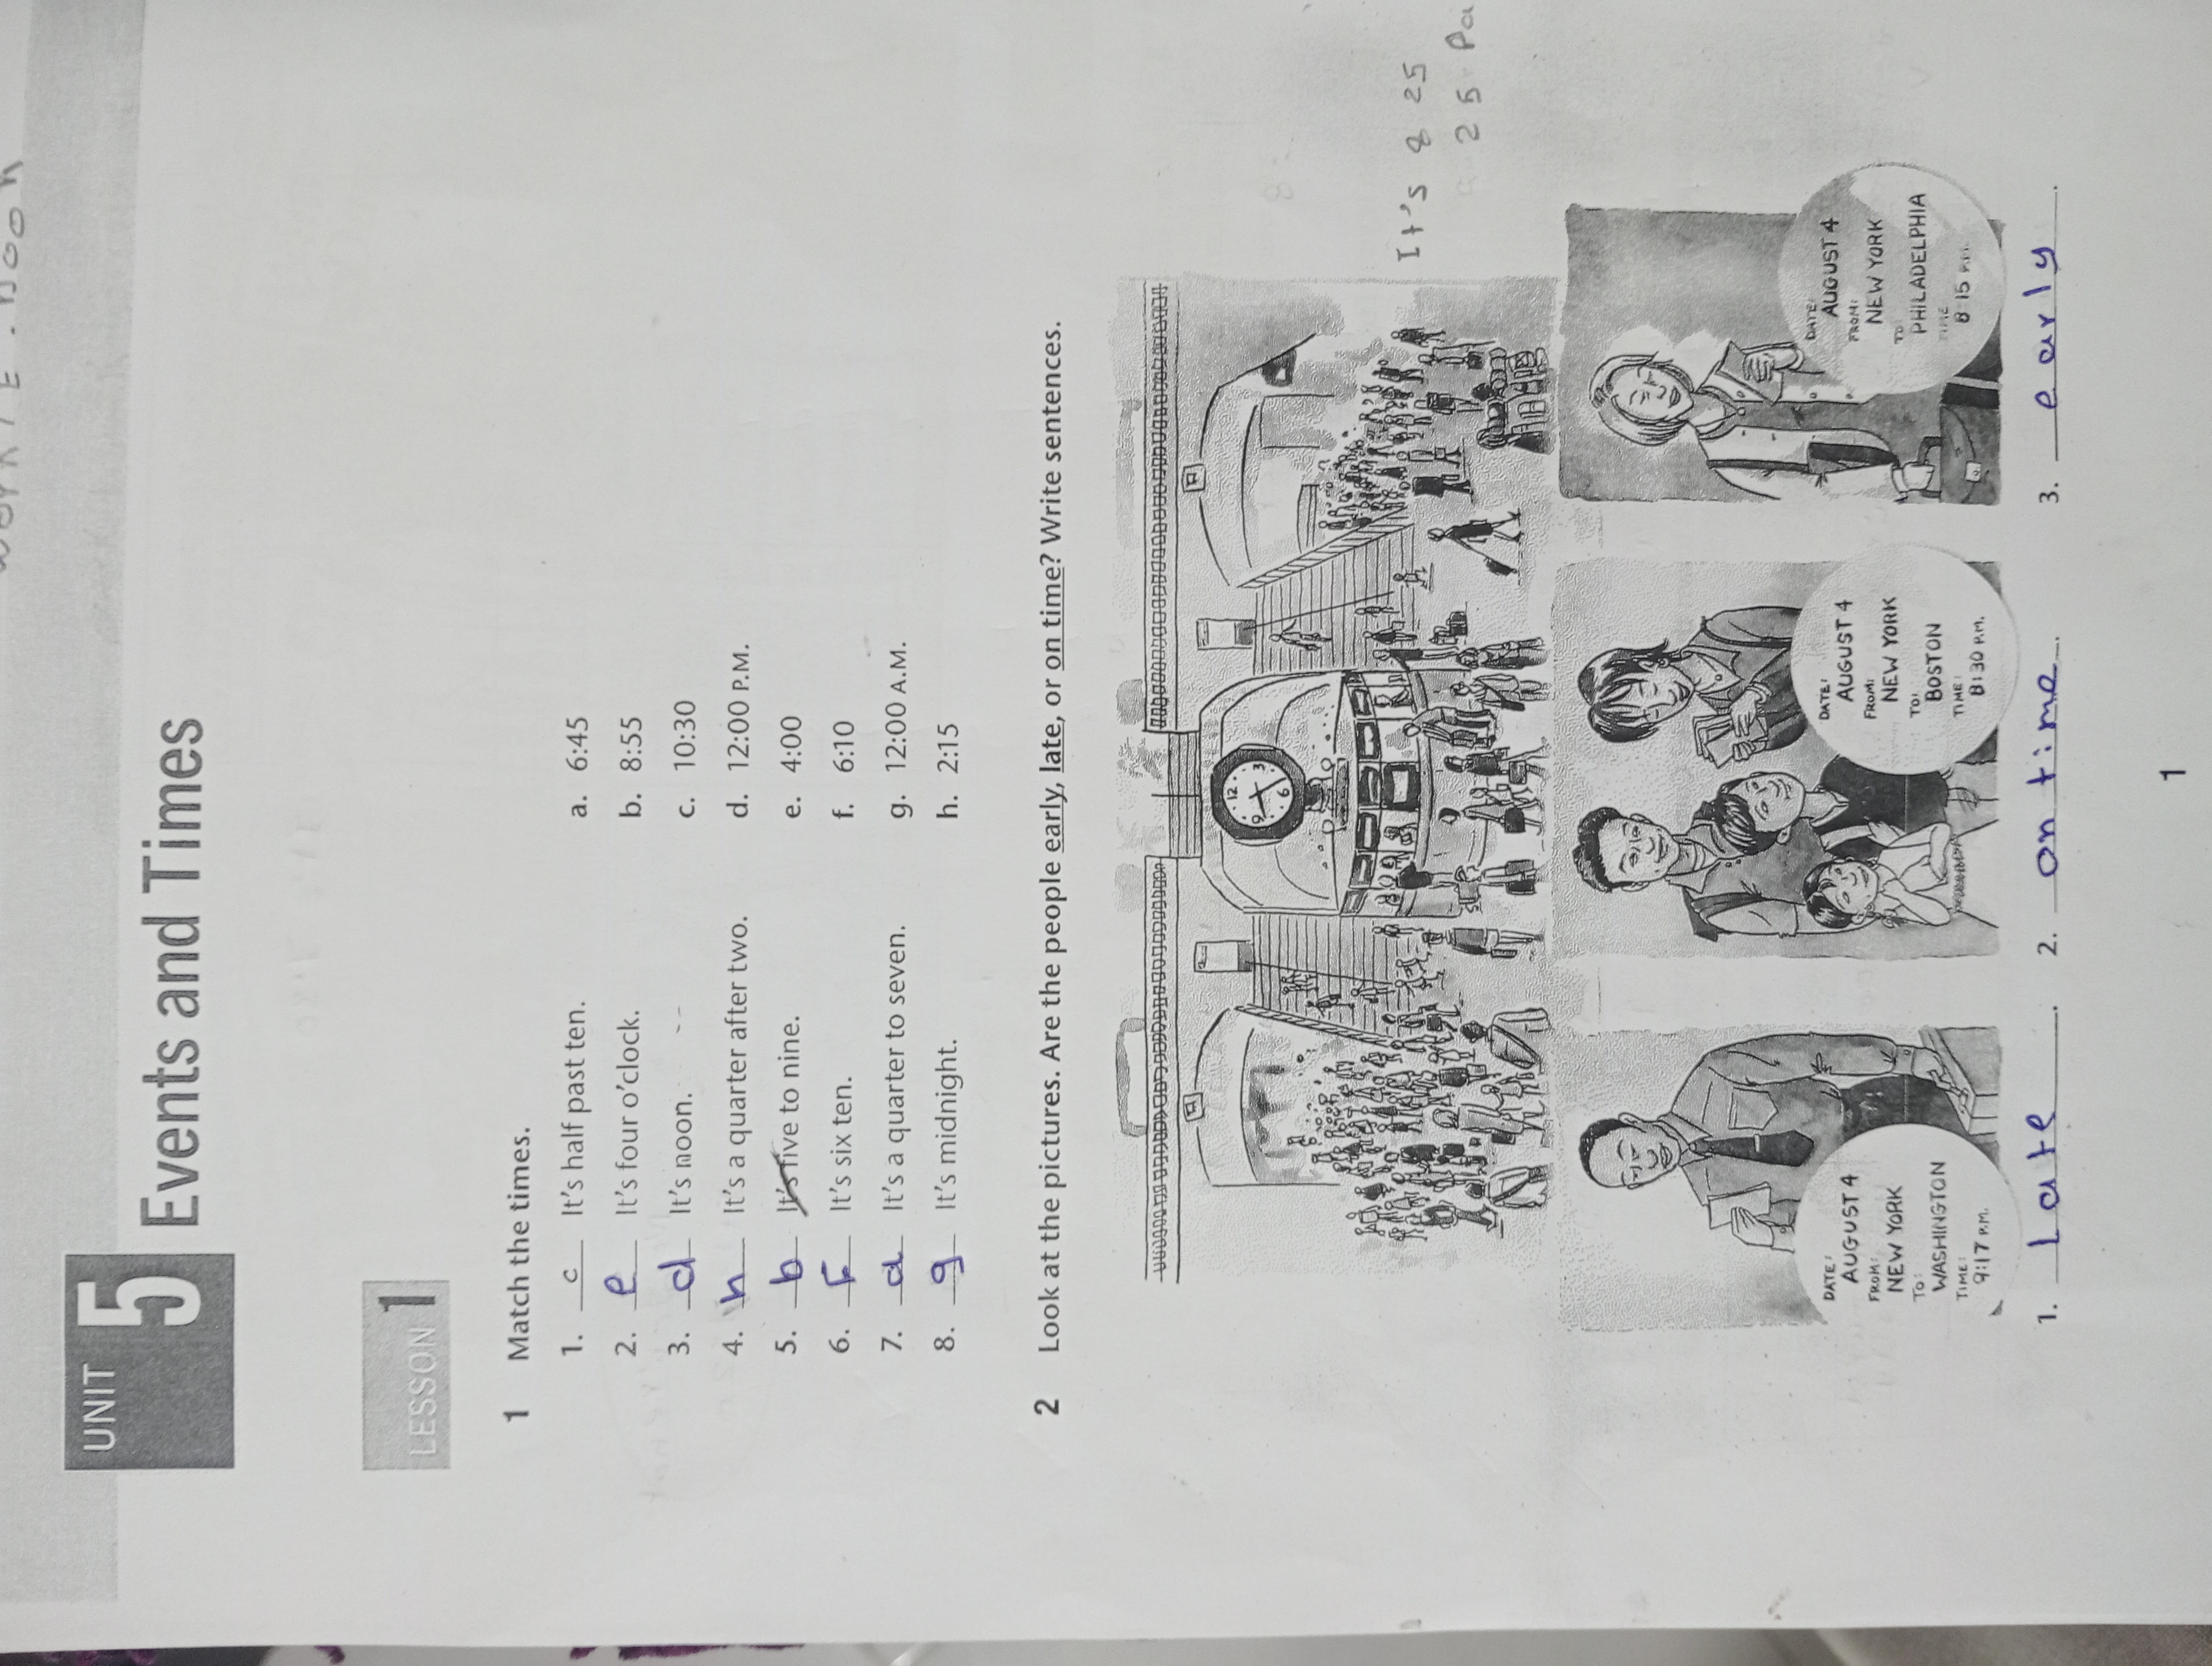 UNIT 5
Events and Times
LESSON 1
1 Match the times.
1. c It's half past ten. a. 6:45
2. e It's four o'clock. b. 8:55
3. d It's noon. c. 10:30
4. h It's a quarter after two. d. 12:00 P.M.
5. b It's five to nine. e. 4:00
6. F It's six ten. f. 6:10
7. d It's a quarter to seven. g. 12:00 A.M.
8. g It's midnight. h. 2:15
2 Look at the pictures. Are the people early, late, or on time? Write sentences.
12
9 3
6
It's 8 25
25 Pa
DATE:
AUGUST 4
FROM:
NEW YORK
TO:
WASHINGTON
TIME:
9:17 P.M.
DATE:
AUGUST 4
FROM:
NEW YORK
TO:
BOSTON
TIME:
8:30 P.M.
DATE:
AUGUST 4
FROM:
NEW YORK
TO
PHILADELPHIA
TIME
8 15 P.M.
1. Late. 2. on time. 3. early.
1